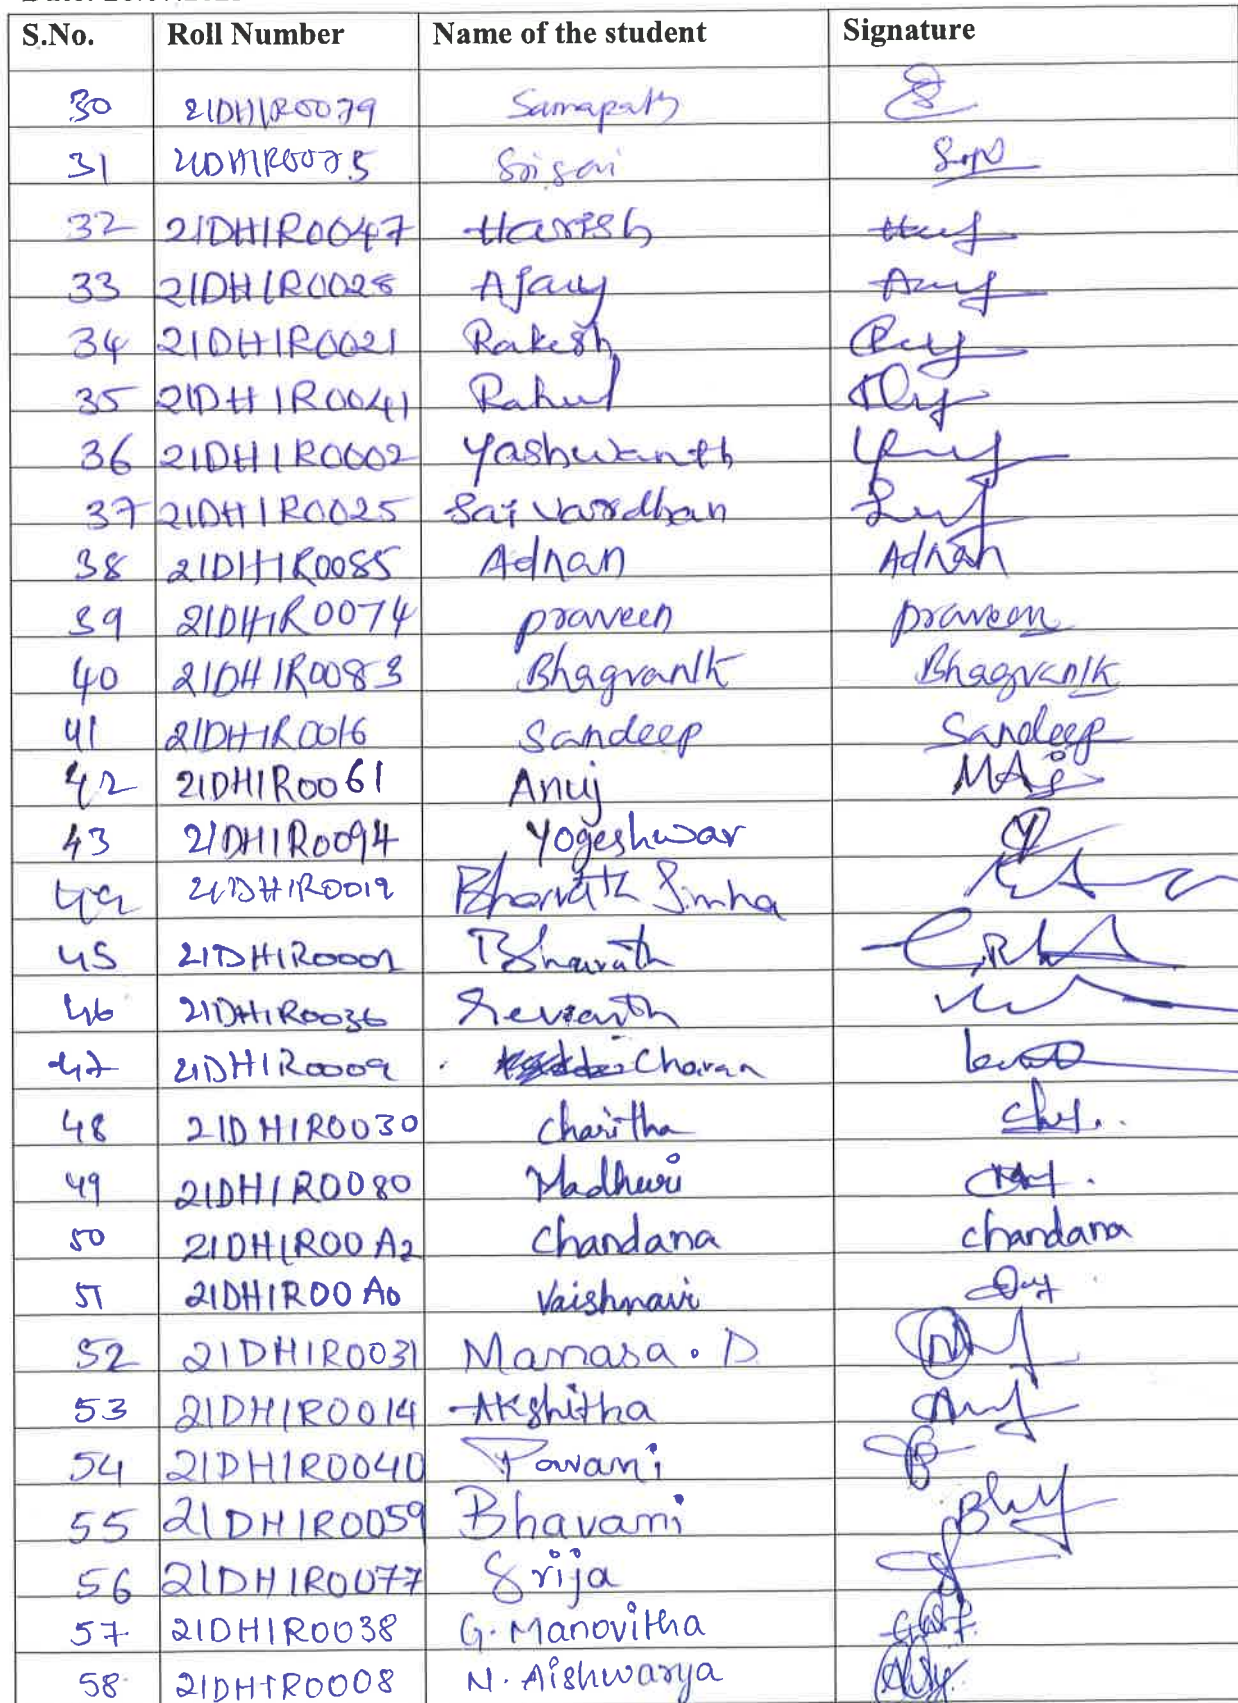 S.No. Roll Number Name of the student Signature
30 21DH1R0079 Samapath
31 Srisai
32 21DH1R0047 Harish
33 21DH1R0028 Ajay
34 21DH1R0021 Rakesh
35 21DH1R0041 Rahul
36 21DH1R0002 Yashwanth
37 21DH1R0025 Sai Vardhan
38 21DH1R0085 Adnan Adnan
39 21DH1R0074 praveen praveen
40 21DH1R0083 Bhagvanlk Bhagvanlk
41 21DH1R0016 Sandeep Sandeep
42 21DH1R0061 Anuj
43 21DH1R0094 Yogeshwar
44 21DH1R0019 Bharath Simha
45 21DH1R0001 Bharath
46 21DH1R0036 Revanth
47 21DH1R0009 Charan
48 21DH1R0030 Charitha
49 21DH1R0080 Madhuri
50 21DH1R00A2 Chandana chandana
51 21DH1R00A0 Vaishnavi
52 21DH1R0031 Manasa. D
53 21DH1R0014 Akshitha
54 21DH1R0040 Pavani
55 21DH1R0059 Bhavani
56 21DH1R0077 Srija
57 21DH1R0038 G. Manovitha
58 21DH1R0008 N. Aishwarya